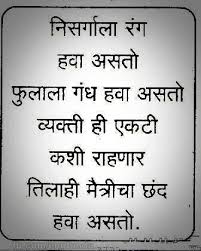 निसर्गाला रंग
हवा असतो
फुलाला गंध हवा असतो
व्यक्ती ही एकटी
कशी राहणार
तिलाही मैत्रीचा छंद
हवा असतो.